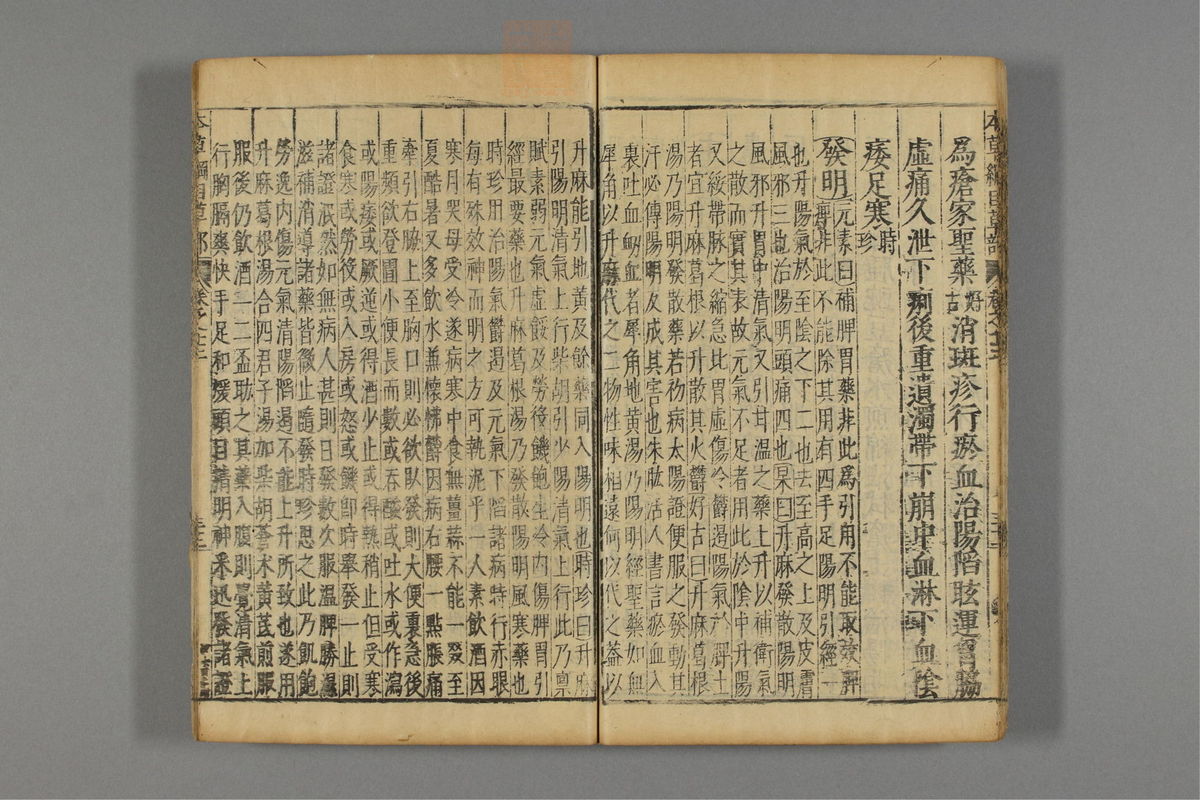 為瘡家聖藥好古消斑疹行瘀血治陽陷眩運胷脇
虛痛久泄下痢後重遺濁帶下崩中血淋下血陰
痿足寒時珍
發明元素曰補脾胃藥非此為引用不能取效脾
痺非此不能除其用有四手足陽明引經一
也升陽氣於至陰之下二也去至高之上及皮膚
風邪三也治陽明頭痛四也杲曰升麻發散陽明
風邪升胃中清氣又引甘溫之藥上升以補衛氣
之散而實其表故元氣不足者用此於陰中升陽
又綏帶脉之縮急此胃虛傷冷鬱遏陽氣於脾土
者宜升麻葛根以升散其火鬱好古曰升麻葛根
湯乃陽明發散藥若初病太陽證便服之發動其
汗必傳陽明反成其害也朱肱活人書言瘀血入
裏吐血衂血者犀角地黃湯乃陽明經聖藥如無
犀角以升麻代之二物性味相遠何以代之蓋以
升麻能引地黃及餘藥同入陽明也時珍曰升麻
引陽明清氣上行柴胡引少陽清氣上行此乃稟
賦素弱元氣虛餒及勞後饑飽生冷內傷脾胃引
經最要藥也升麻葛根湯乃發散陽明風寒藥也
時珍用治陽氣鬱遏及元氣下陷諸病時行赤眼
每有殊效神而明之方可執泥乎一人素飲酒因
寒月哭母受冷遂病寒中食無薑蒜不能一啜至
夏酷暑又多飲水兼懷怫鬱因病右腰一點脹痛
牽引右脇上至胸口則必欲臥發則大便裏急後
重頻欲登圊小便長而數或吞酸或吐水或作瀉
或陽痿或厥逆或得酒少止或得熱稍止但受寒
食寒或勞後或入房或怒或饑即時舉發一止則
諸證泯然如無病人甚則日發數次服溫脾勝濕
滋補消導諸藥皆微止隨發時珍思之此乃飢飽
勞逸內傷元氣清陽陷遏不能上升所致也遂用
升麻葛根湯合四君子湯加柴胡蒼朮黃芪煎服
服後仍飲酒一二盃助之其藥入腹則覺清氣上
行胸膈爽快手足和煖頭目精明神采迅發諸證
本草綱目草部
本草綱目草部